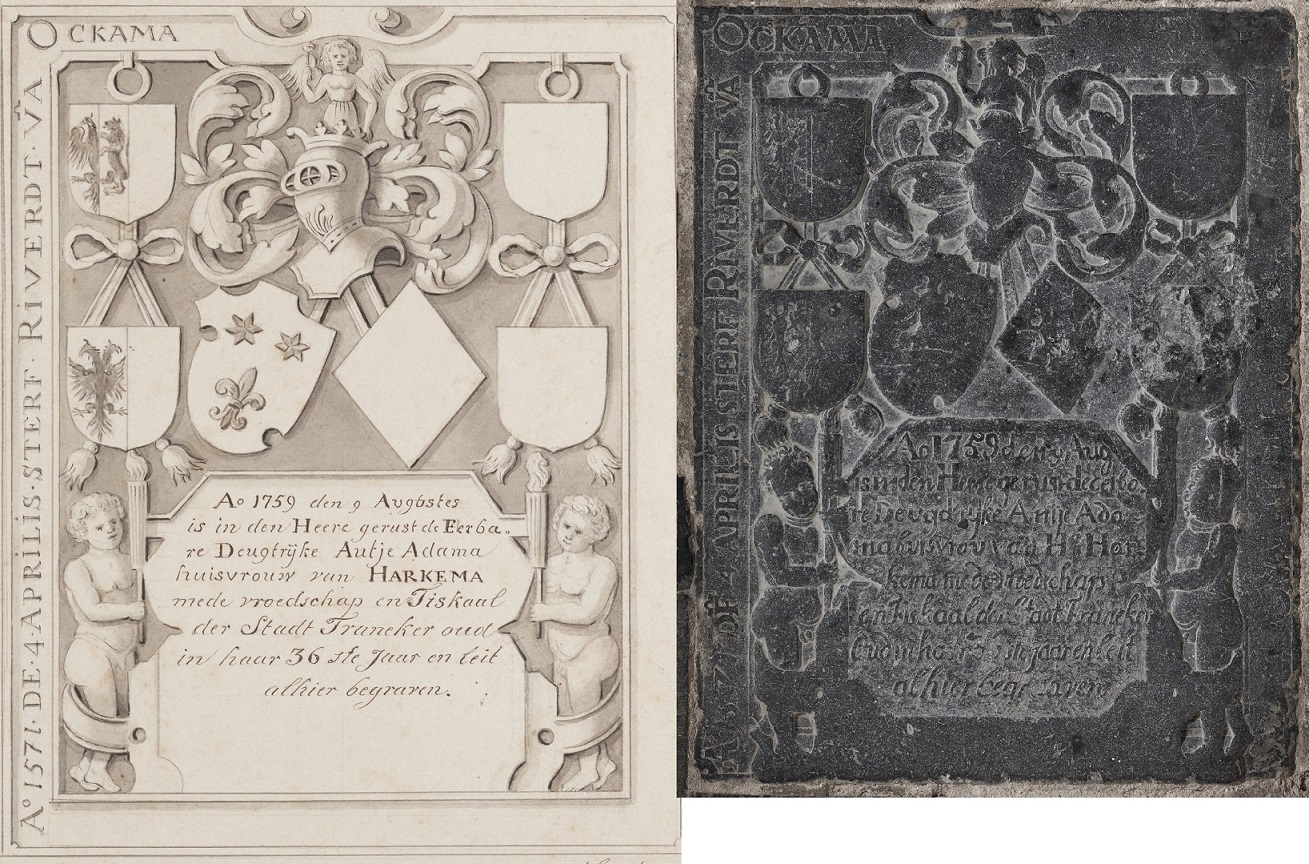 OCKAMA
Aº 1571. DE. 4. APRILIS. STERF. RIVERDT. VÃ
Aº 1759 den 9 Avgustes
is in den Heere gerust de Eerba„
re Deugtrijke Autje Adama
huisvrouw van HARKEMA
mede vroedschap en Fiskaal
der Stadt Franeker oud
in haar 36 ste Jaar en leit
alhier begraven.
OCKAMA
DE 4 APRILIS STERF RIVERDT VÃ
Ao 1759 den 9 Aug
is in den Heere gerust de eerba
re Deugdrijke Antje Ada
ma huisvrou van Hr Har
kema mede vroedschap
en Fiskaal der Stadt Franeker
Oud in haar jaar en leit
alhier begraven